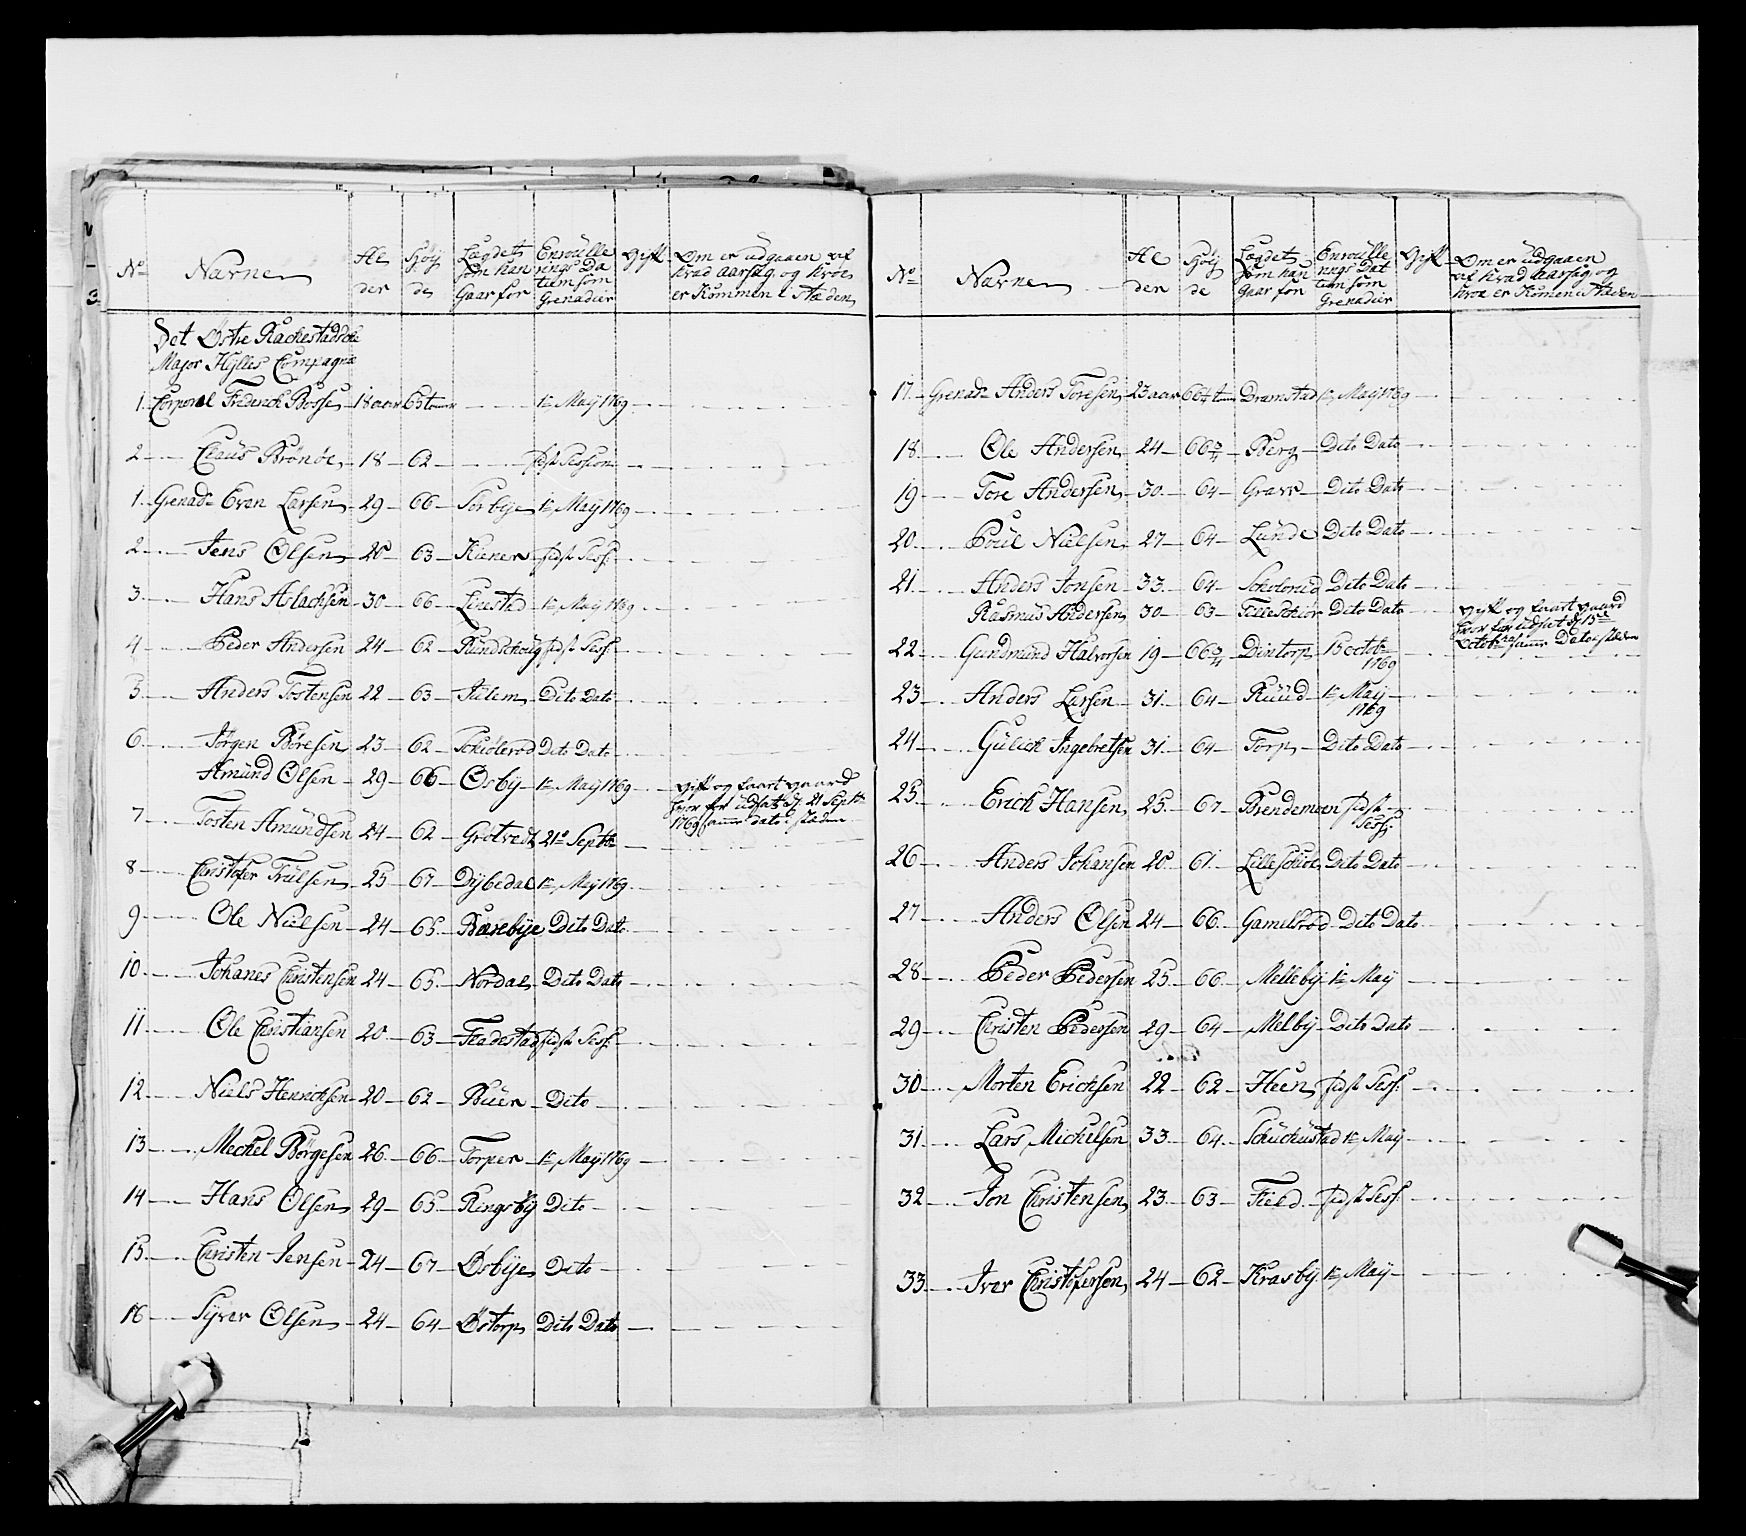 No Navne Al der Høy de Lægdet som han Gaar for Enroulle rings Da tum som Grenadier Gift Om er udgaaen af hvad aarsag og hvor er kommen i Stæden
Det Østre Rackestadske
Major Hylles Compagnie
1. Corporal Frederich Bosse 18 aar 65 tomr 1te Maij 1769
2 Claus Brónóe 18 62 sidste Session
1. Grenadr Even Larsen 29 66 Sorbye 1te Maij 1769
2 Jens Olsen 20 63 Kiener sidst Sess:
3. Hans Aslachsen 30 66 Linestad 1te Maij 1769
4 Peder Andersen 24 62 Rundschoug sidst Sess:
5. Anders Tostensen 22 63 Julem Dito Dato
6. Jórgen Bóresen 23 62 Schiólerod Dito Dato
Amund Olsen 29 66 Osby 1te Maij 1769 gift og faart gaard
hvor for udsat d 21 Septbr
7 Tosten Amundsen 24 62 Grotvedt 21de Septbr 1769 samme dato i stæden
8 Christofer Trulsen 25 67 Dybedal 1te Maij 1769
9 Ole Nielsen 24 65 Barebye Dito Dato
10. Johanes Christensen 24 65 Nordal Dito Dato
11 Ole Christiansen 20 63 Fladestad sidst Sess:
12 Niels Henrichsen 20 62 Buer Dito
13 Mechel Bórgesen 26 66 Torper 1te Maij 1769
14 Hans Olsen 29 65 Ringsby Dito
15. Christen Jensen 24 67 Osbye Dito
16 Syver Olsen 24 64 Østorp Dito Dato
No Navne Al der Høy de Lægdet som han gaar for Enroulle rings Dat tum som Grenadier Gift Om er udgaaen af hvad Aarsag og hvor er Komen i Stæden
17. Grenadr Anders Toresen 23 aar 66 1/4 tomr Dramstad 1te Maij 1769
18 Ole Andersen 24 66 3/4 Berg Dito Dato
19 Tore Andersen 30 64 Grav Dito Dato
20 Poul Nielsen 27 64 Lunde Dito Dato
21. Anders Jonsen 33 64 Dito Dato
Rasmus Andersen 30 63 Dito Dato gift og faart gaard
hvor for udsat d 15de
22 Gundmund Halvorsen 19 66 3/4 Dintorp 15 octobr 1769 Octobr samme Dato i stæden
23 Anders Larsen 31. 64 Ruud 1te Maij 1769
24 Gulich Ingebretsen 31. 64 Torp Dito Dato
25 Erich Hansen 25. 67 Brendemoen sidst Sess:
26 Anders Johansen 20 61. Lilleschou Dito Dato
27 Anders Olsen 24 66 Gamelsrod Dito Dato
28 Peder Pedersen 25 66 Melleby 1te May
29 Christen Pedersen 29 64 Melby Dito Dato
30 Morten Erichsen 22 62 Heen sidst Sess:
31 Lars Michelsen 33 64 Schuckustad 1te Maij
32 Jon Christensen 23. 63 Field sidst Sess:
33 Iver Christofersen 24 62 Krasby 1te Maij